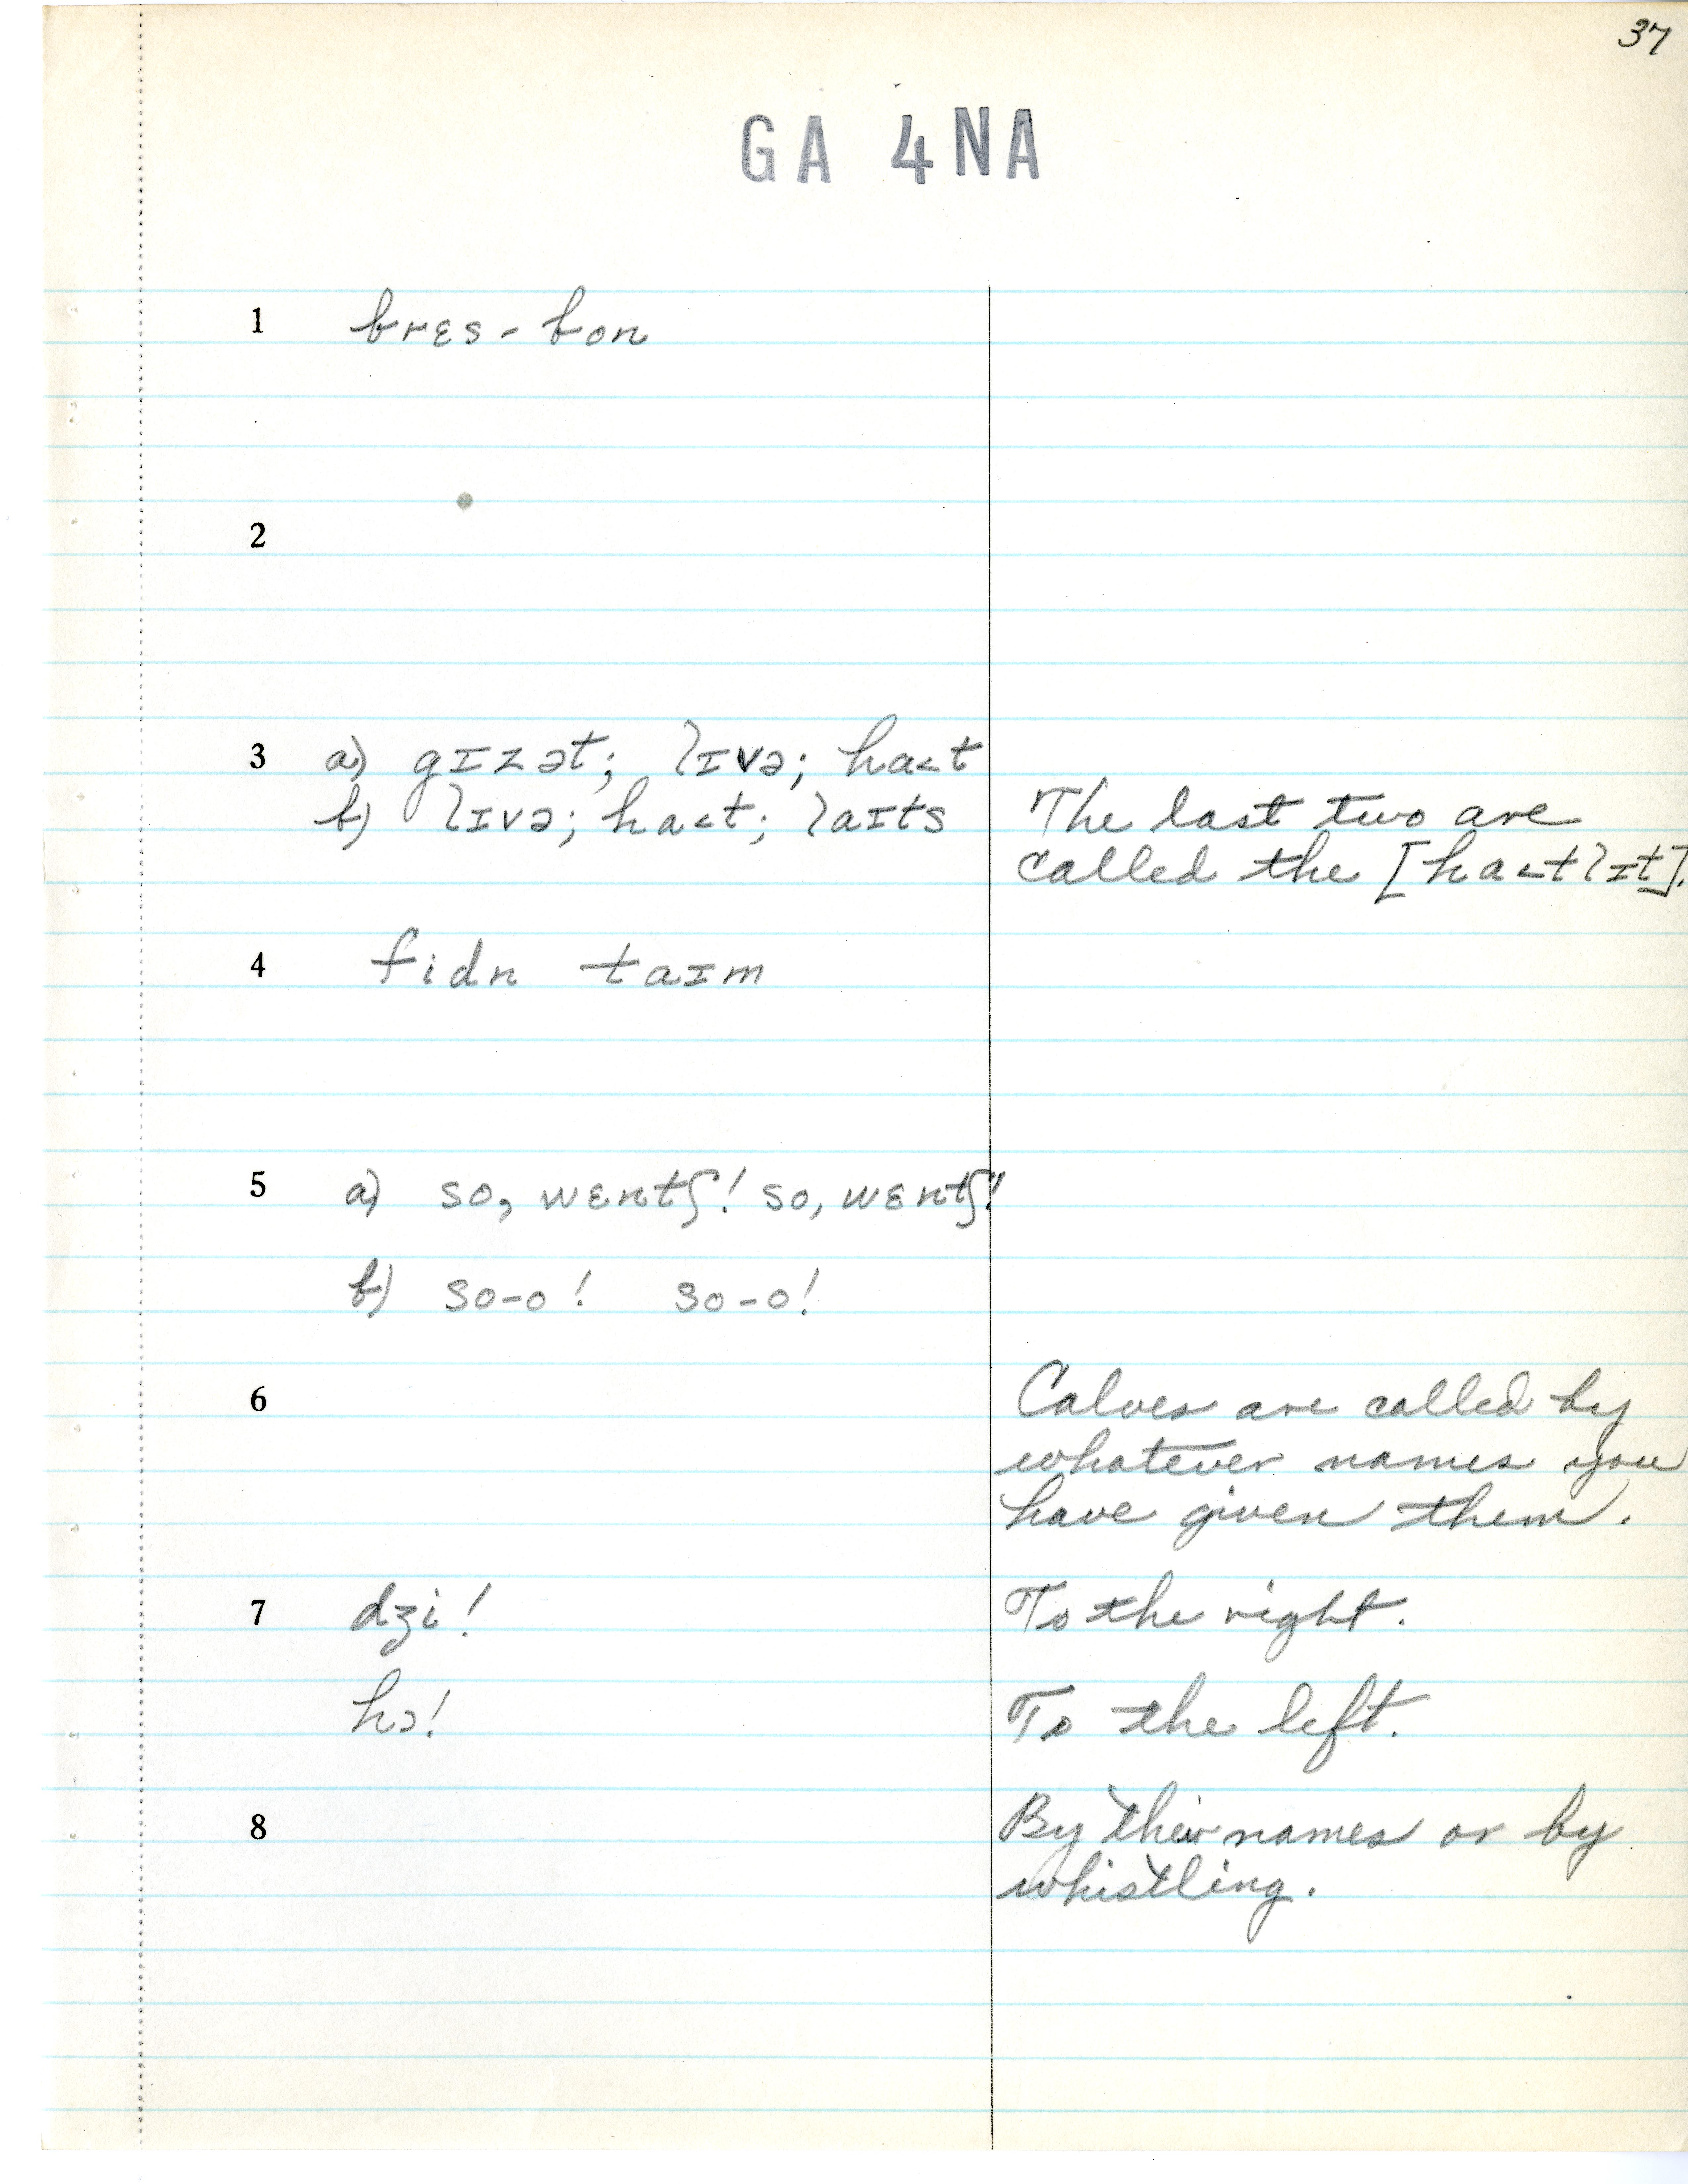 37
GA 4NA
1 brɛs-bon
2
3 a) gɪzət; lɪvə; ha˂t
b) lɪvə; ha˂t; laɪts The last two are
called the [ha˂tlɪt].
4 fidn taɪm
5 a) so, wɛntʃ! so, wɛntʃ!
b) so-o! so-o!
6 Calves are called by
whatever names you
have given them.
7 dʒi! To the right.
hɔ! To the left.
8 By their names or by
whistling.